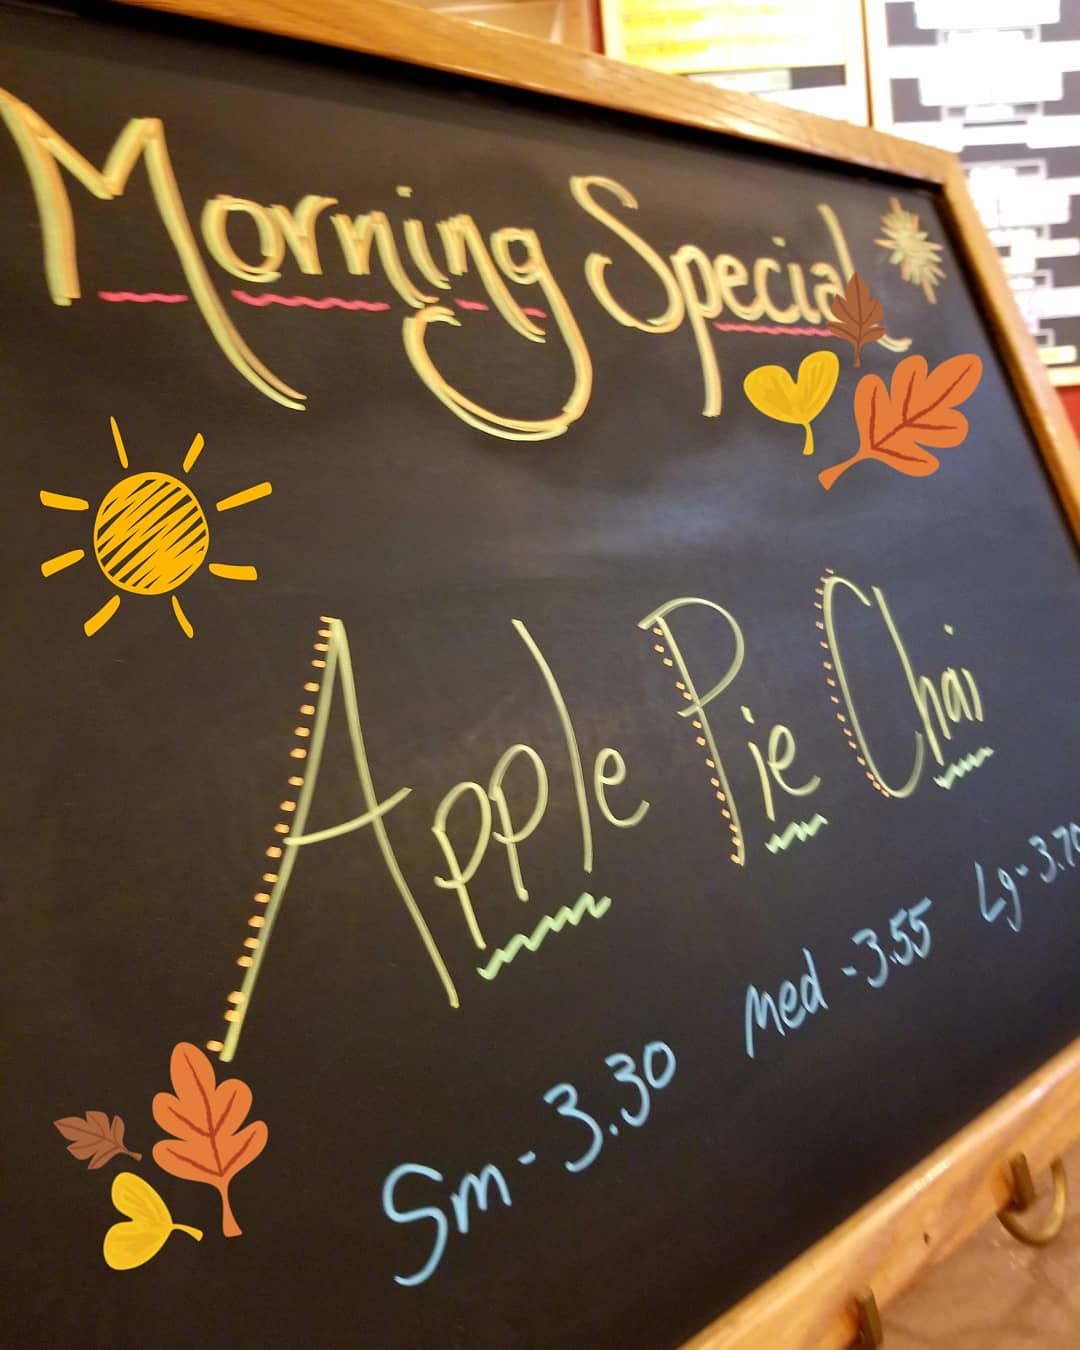 Morning Special
Apple Pie Chai
Sm-3.30 Med-3.55 Lg-3.70